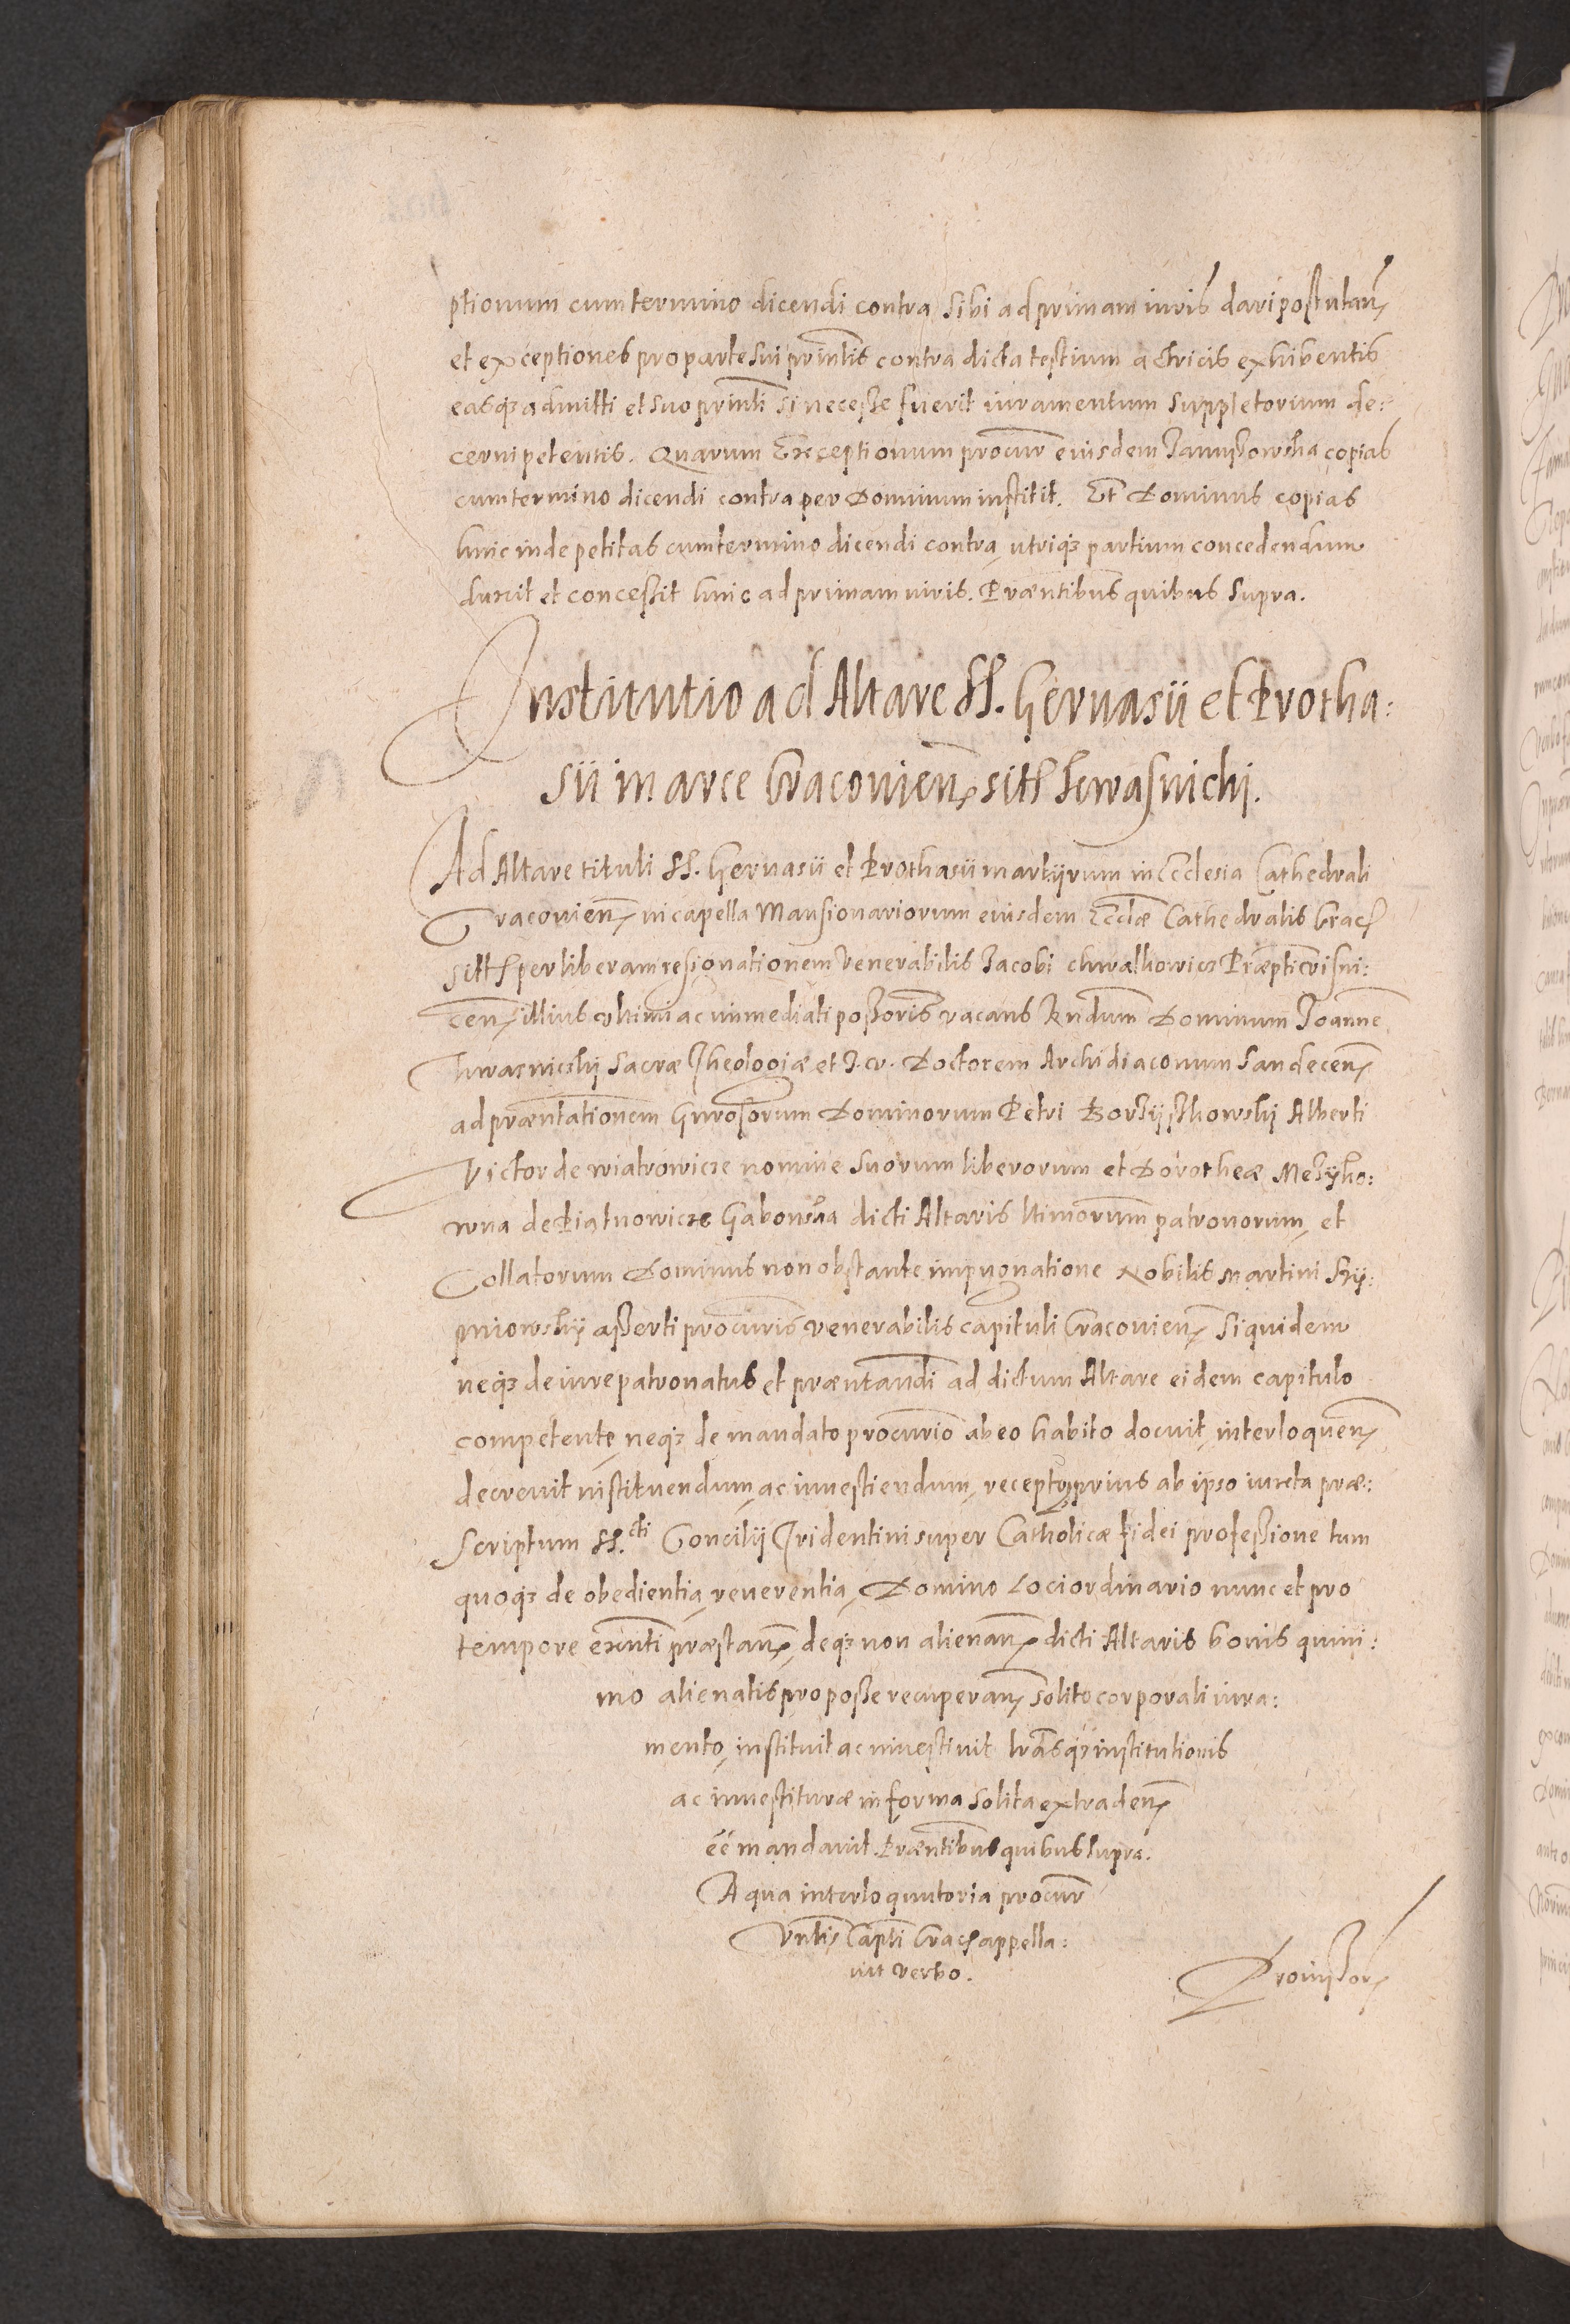 ptionum cum termino dicendi contra sibi ad primam iuris dari postulan̄
et exceptiones pro parte sui prin̄lis contra dicta testium actricis exhibentis
easq̃ admitti et suo prin̄li si necesse fuerit iuramentum suppletorium de:
cerni petentis. Quarum Exceptionum procur̄ eiusdem copias
cum termino dicendi contra per Dominum institit. Et Dominus copias
hinc inde petitas cum termino dicendi contra, utriq̃ partium concedendum
duxit et concessit hinc ad primam iuris. Præntibus quibus supra.
Institutio ad Altare SS. Geruasii et Protha:
sii in arce Cracouien̄ sitł
Ad Altare tituli SS. Geruasii et Prothasii martyrum in Ecclesia Cathedrali
Cracouien̄ in capella Mansionariorum eiusdem Eccłæ Cathedralis Crac̄
sitł per liberam resignationem Venerabilis Jacobi Præpti
cen̄ illius ultimi ac immediati possoris vacans Rn̄dum Dominum Joanne
Sacræ Theologiæ et J. V. Doctorem Archidiaconum Sandecen̄
ad præntationem Gnrosorum Dominorum Petri Alberti
Victor de wiatrowicze nomine suorum liberorum et Dorotheæ Mezyko:
wna de dicti Altaris łtimorum patronorum, et
Collatorum Dominus non obstante impugnatione Nobilis Martini Szy:
mowsky asserti procuris venerabilis capituli Cracouien̄ siquidem
neq̃ de iurepatronatus et præntandi ad dictum Altare eidem capitulo
competente, neq̃ de mandato procurio ab eo habito docuit, interloquen̄
decreuit instituendum, ac inuestiendum, recepto prius ab ipso iuxta præ:
scriptum SS.cti Concilii Tridentini super Catholicæ fidei professione tum
quoq̃ de obedientia, reuerentia, Domino Loci ordinario nunc et pro
tempore exn̄ti præstan̄, deq̃ non alienan̄ dicti Altaris bonis quini:
mo alienatis pro posse recuperan̄ solito corporali iura:
mento, instituit ac inuestiuit lrãsq̃ institutionis
ac inuestituræ in forma solita extraden̄
eē mandauit. Præntibus quibus supra.
A qua interloquutoria procur̄
Vn̄lis Capłi Crac̄ appella:
uit verbo.